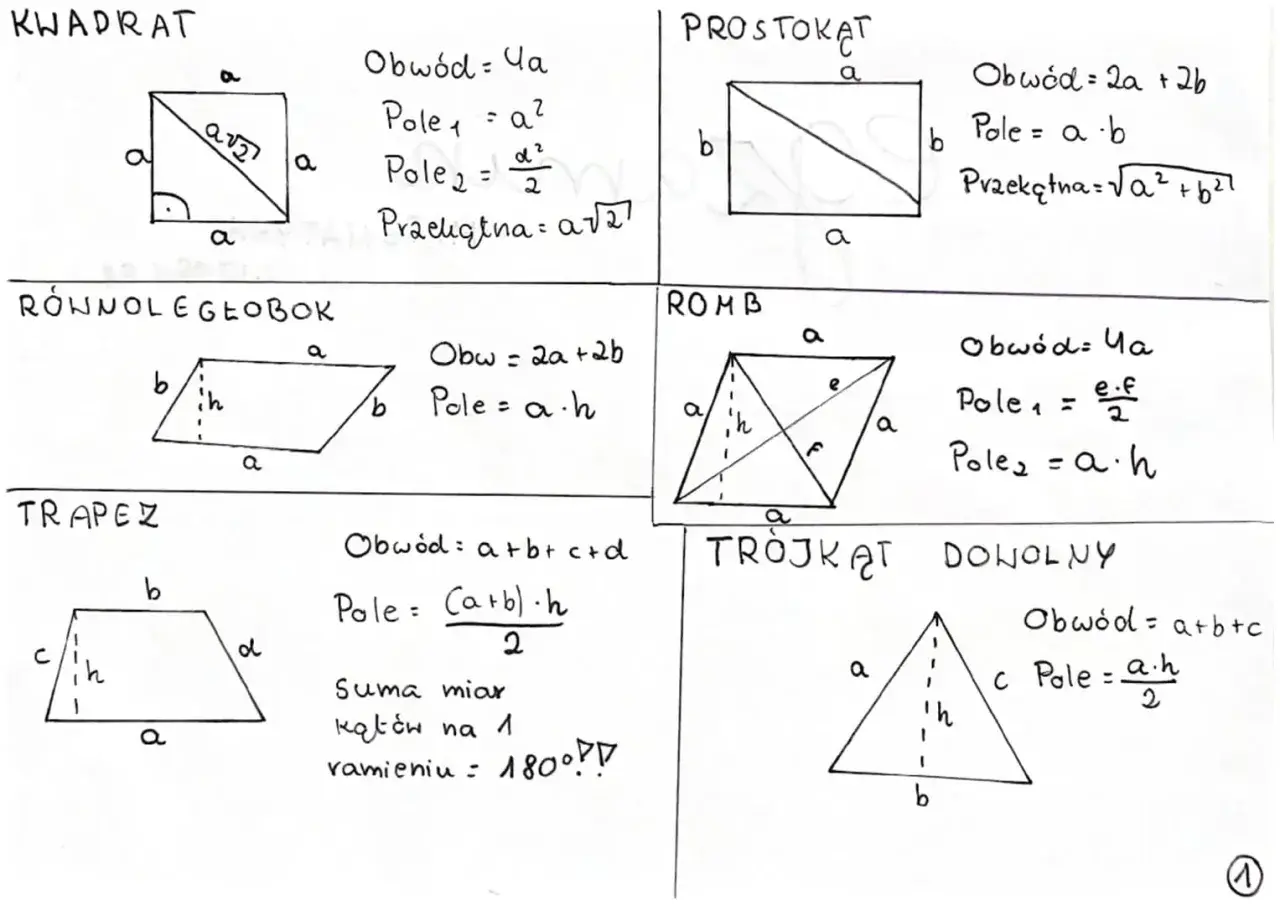 KWADRAT
a
a
a√2
a
a
Obwód = 4a
Pole₁ = a²
Pole₂ = d²/2
Przekątna = a√2
PROSTOKĄT
a
b
b
a
Obwód = 2a + 2b
Pole = a · b
Przekątna = √a² + b²
RÓWNOLEGŁOBOK
a
b
h
b
a
Obw = 2a + 2b
Pole = a · h
ROMB
a
e
a
h
a
f
a
Obwód = 4a
Pole₁ = e·f/2
Pole₂ = a · h
TRAPEZ
b
c
h
d
a
Obwód = a+b+c+d
Pole = (a+b)·h/2
suma miar
kątów na 1
ramieniu = 180°!!
TRÓJKĄT DOWOLNY
a
c
h
b
Obwód = a+b+c
Pole = a·h/2
1